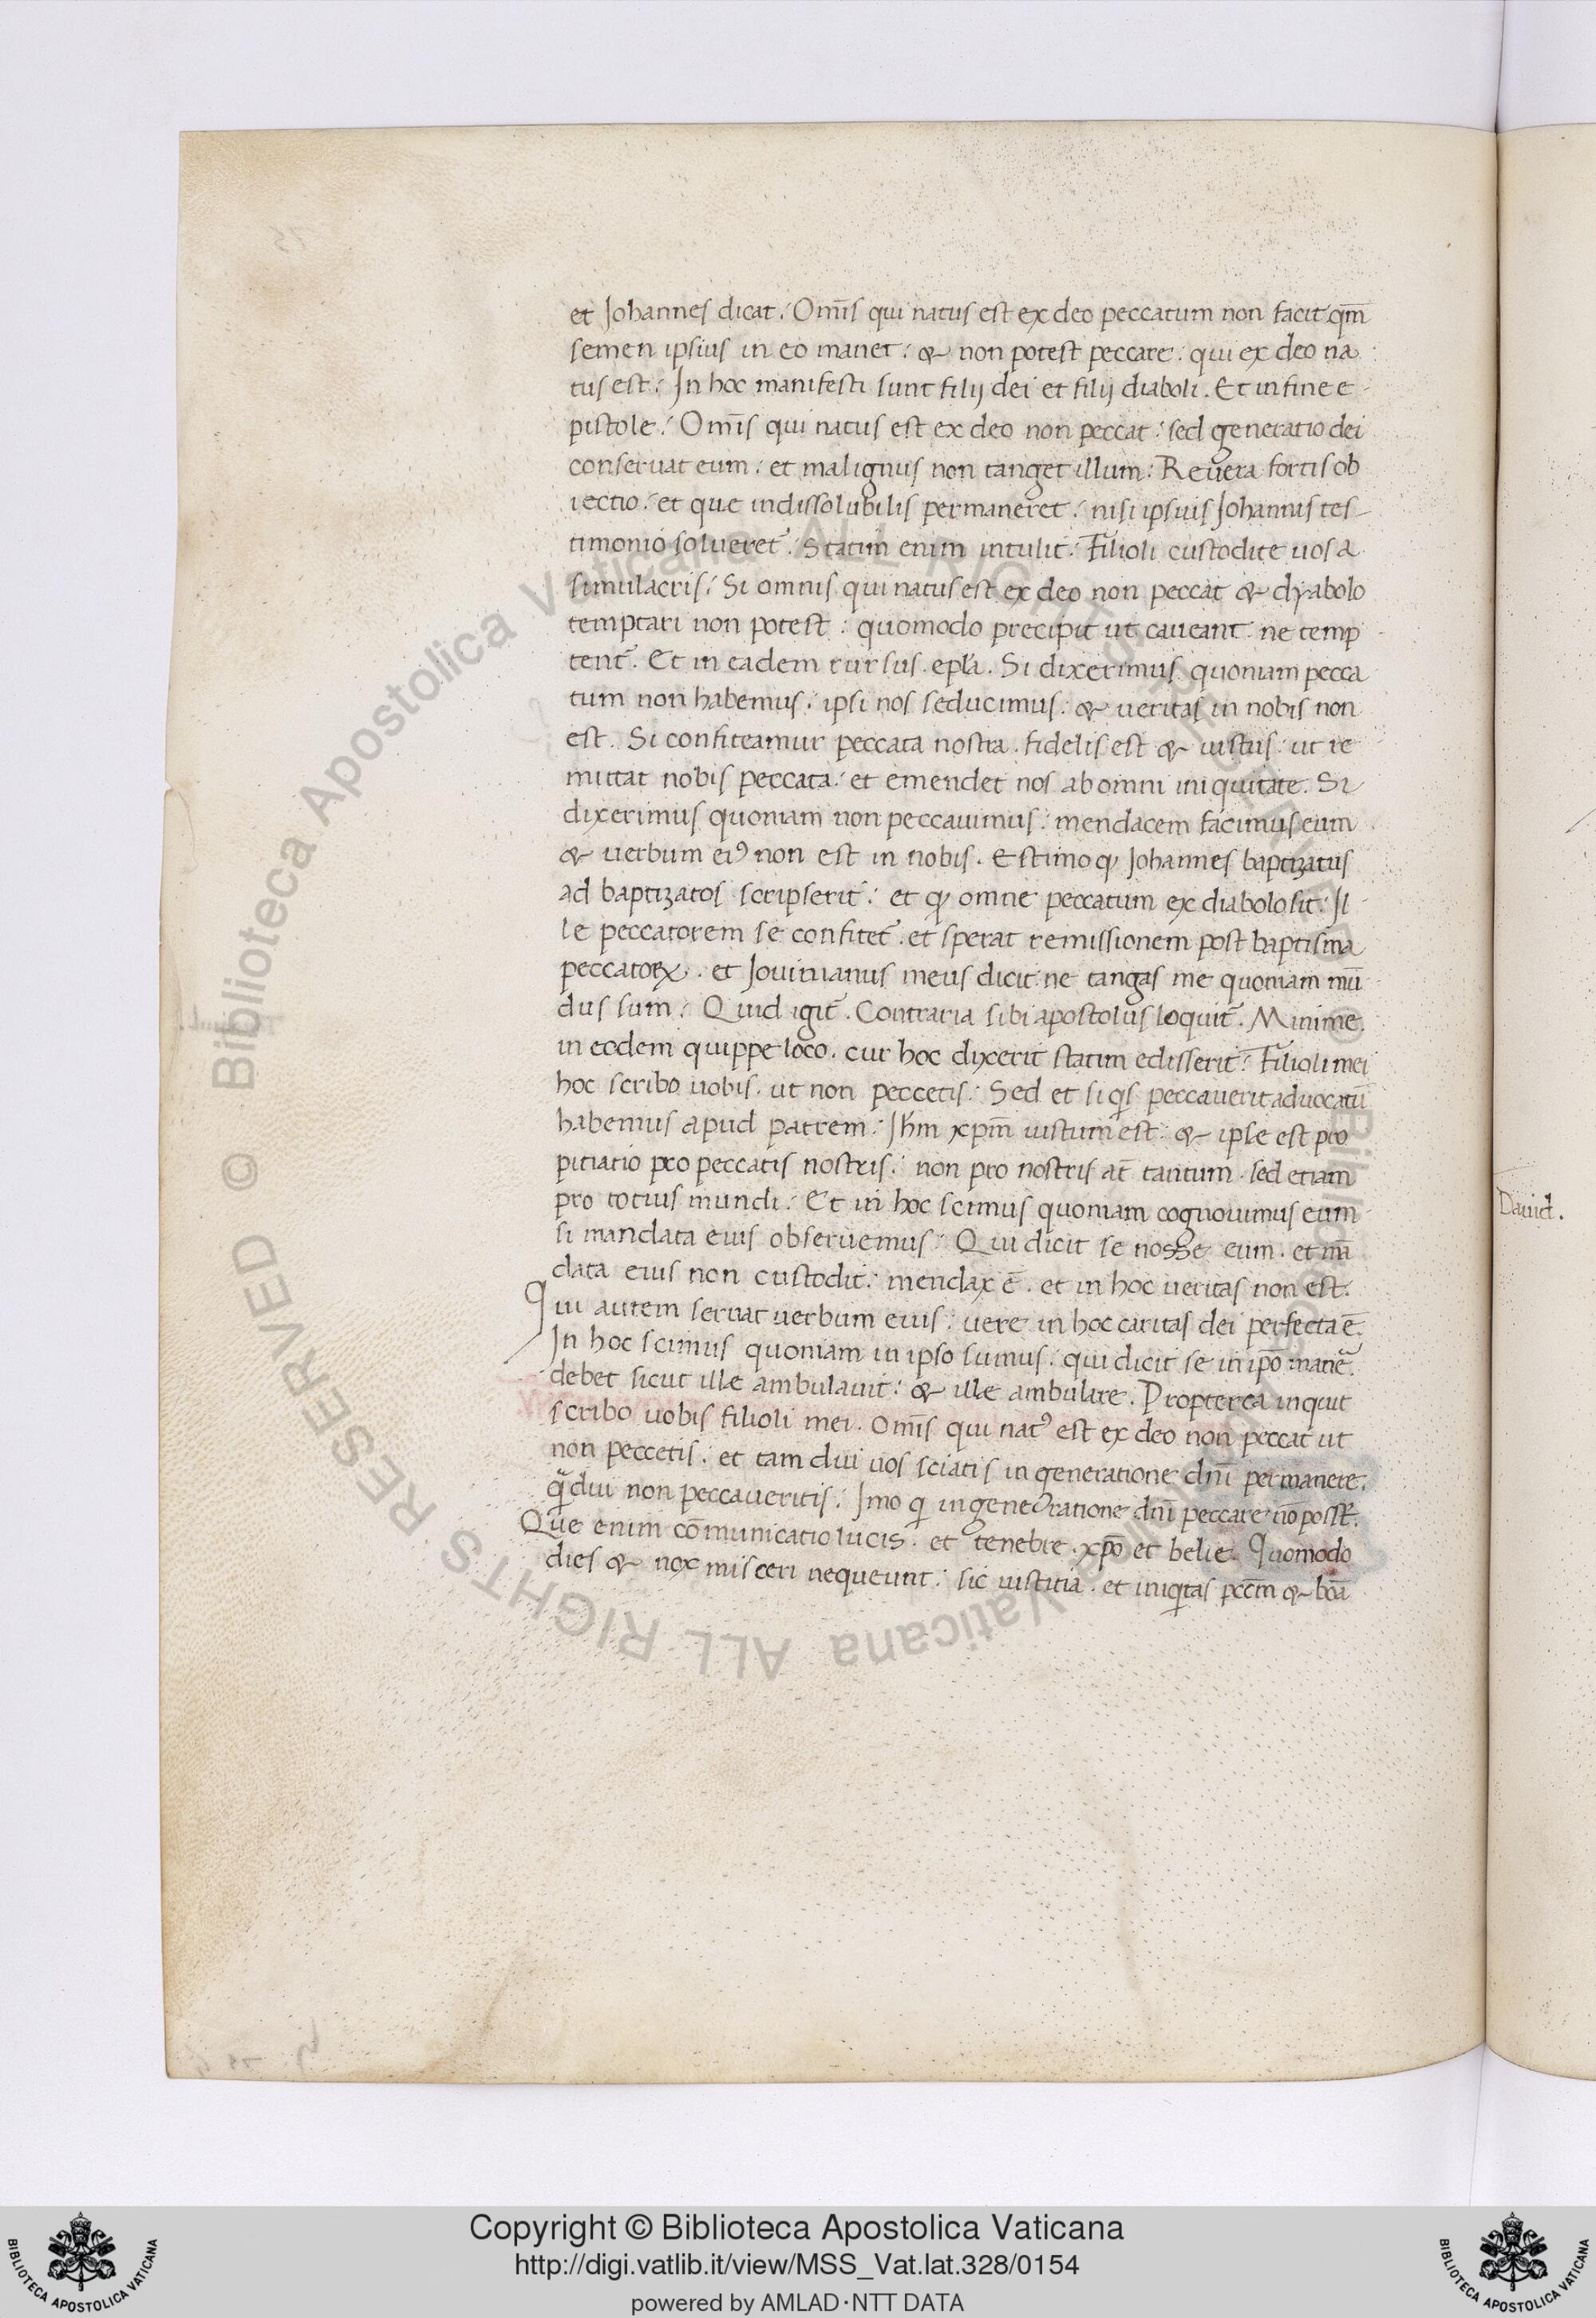 et Johannes dicat. Om̄s qui natus est ex deo peccatum non facit qm̄
semen ipsius in eo manet: & non potest peccare. qui ex deo na
tus est: In hoc manifesti sunt filij dei et filij diaboli. Et in fine e
pistole: Om̄s qui natus est ex deo non peccat: sed generatio dei
conseruat eum: et malignus non tanget illum: Reuera fortis ob
iectio: et que indissolubilis permaneret: nisi ipsuis Johannis tes
timonio solueret᷑. Statim enim intulit: Filioli custodite uos a
simulacris: Si omnis qui natus est ex deo non peccat & dyabolo
temptari non potest: quomodo precipit ut caueant ne temp
tent᷑. Et in eadem rursus ep̄la. Si dixerimus quoniam pecca
tum non habemus: ipsi nos seducimus: & ueritas in nobis non
est. Si confiteamur peccata nostra. fidelis est & iustus: ut re
mittat nobis peccata: et emendet nos ab omni iniquitate. Si
dixerimus quoniam non peccauimus: mendacem facimus eum
& uerbum eiꝰ non est in nobis. Estimo ꝙ Johannes baptizatus
ad baptizatos scripserit: et ꝙ omne peccatum ex diabolo sit: Il
le peccatorem se confitet᷑. et sperat remissionem post baptisma
peccatoꝝ. et Jouinianus meus dicit: ne tangas me quoniam mū
dus sum: Quid igit᷑. Contraria sibi apostolus loquit᷑. Minime.
in eodem quippe loco. cur hoc dixerit statim edisserit: Filioli mei
hoc scribo uobis. ut non peccetis: Sed et si qͥs peccauerit aduocatū
habemus apud patrem: Jhm̄ xpm̄ iustum est: & ipse est pro
pitiatio pro peccatis nostris: non pro nostris at̄ tantum. sed etiam
pro totius mundi: Et in hoc scimus quoniam cognouimus eum
si mandata eius obseruemus: Qui dicit se nosse eum. et mā
data eius non custodit: mendax ē. et in hoc ueritas non est:
Qui autem seruat uerbum eius: uere in hoc caritas dei perfecta ē.
In hoc scimus quoniam in ipso sumus: qui dicit se in ipō manē.
debet sicut ille ambulauit: & ille ambulare. Propterea inquit
scribo uobis filioli mei. Om̄s qui natꝰ est ex deo non peccat ut
non peccetis: et tam diu uos sciatis in generatione dn̄i permanere.
qͣdiu non peccaueritis: Imo qͥ in generatione dn̄i peccare nō poss̄t.
Que enim cōmunicatio lucis. et tenebre. xpō et belie. Quomodo
dies & nox misceri nequeunt: sic iustitia. et iniqͥtas pccm̄ & bōa
Dauid.
Copyright © Biblioteca Apostolica Vaticana
http://digi.vatlib.it/view/MSS_Vat.lat.328/0154
powered by AMLAD·NTT DATA
BIBLIOTECA APOSTOLICA VATICANA
BIBLIOTECA APOSTOLICA VATICANA